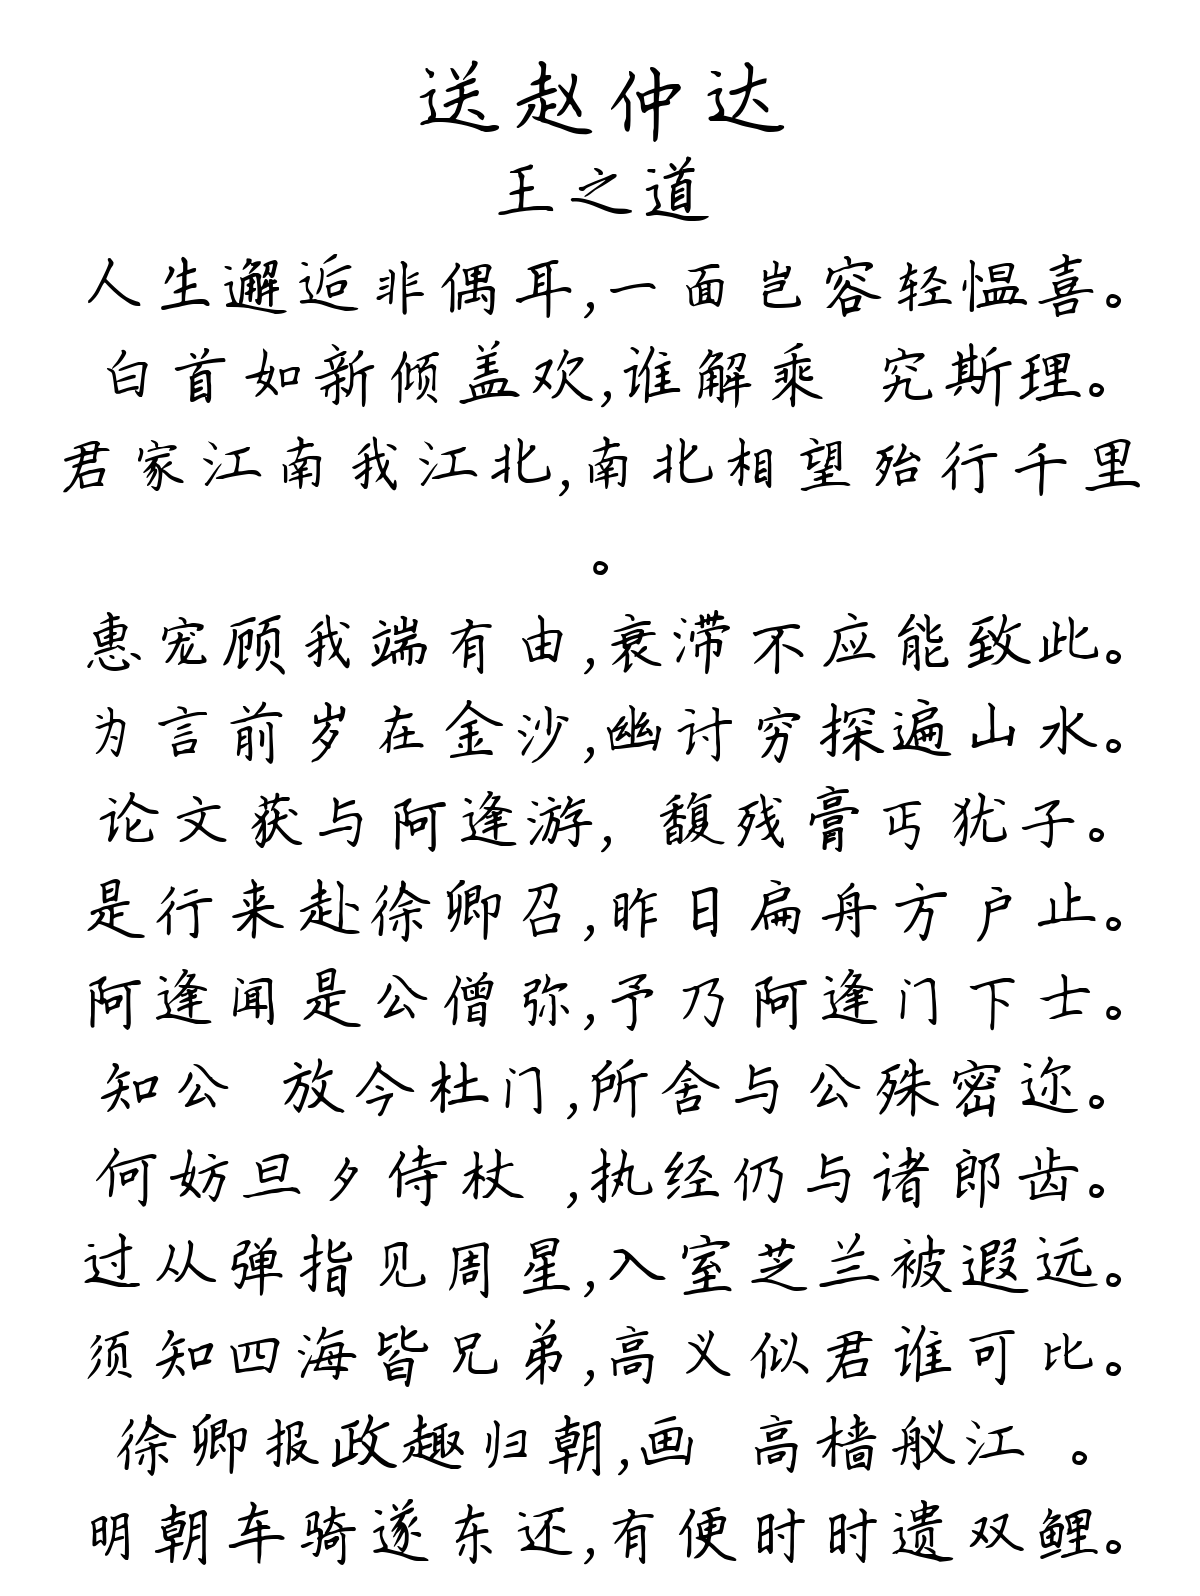 送赵仲达
王之道
人生邂逅非偶耳,一面岂容轻愠喜。
白首如新倾盖欢,谁解乘 究斯理。
君家江南我江北,南北相望殆行千里
。
惠宠顾我端有由,衰滞不应能致此。
为言前岁在金沙,幽讨穷探遍山水。
论文获与阿逢游, 馥残膏丐犹子。
是行来赴徐卿召,昨日扁舟方户止。
阿逢闻是公僧弥,予乃阿逢门下士。
知公 放今杜门,所舍与公殊密迩。
何妨旦夕侍杖 ,执经仍与诸郎齿。
过从弹指见周星,入室芝兰被遐远。
须知四海皆兄弟,高义似君谁可比。
徐卿报政趣归朝,画 高樯舣江 。
明朝车骑遂东还,有便时时遗双鲤。